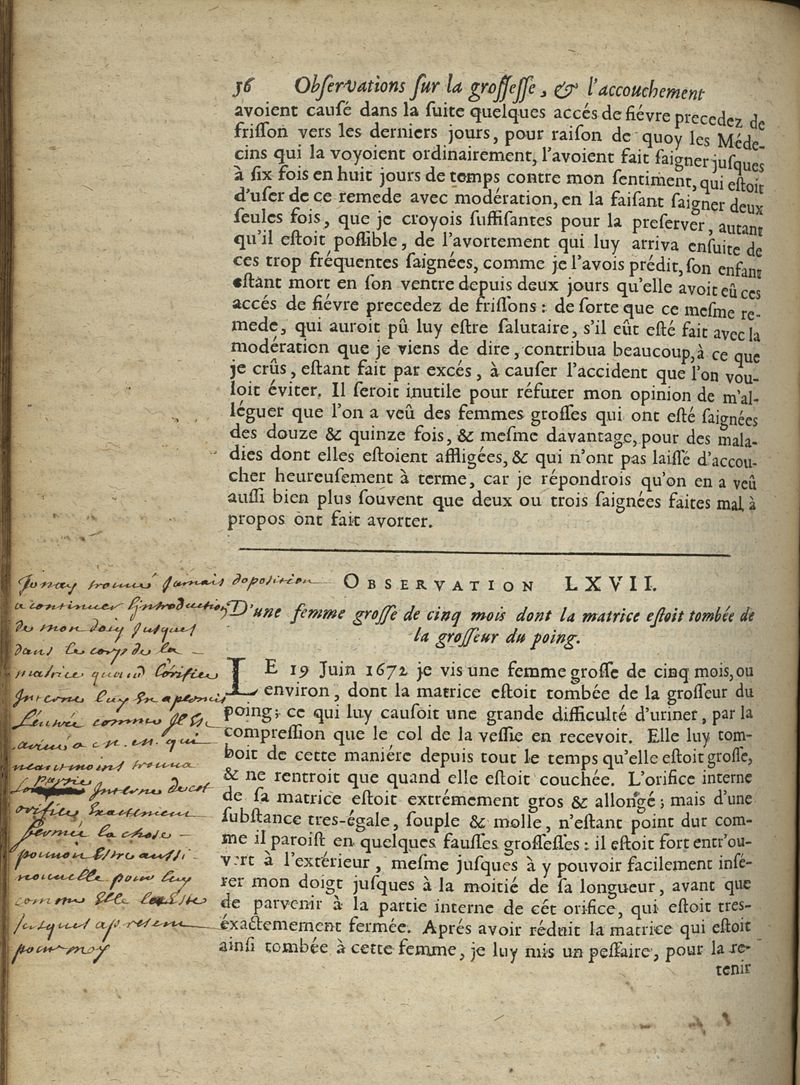 56 Obſervations ſur la groſſeſſe, & l'accouchement
avoient cauſé dans la ſuite quelques accés de fiévre precedez de
friſſon vers les derniers jours, pour raiſon de quoy les Méde-
cins qui la voyoient ordinairement, l'avoient fait ſaigner juſques
à ſix fois en huit jours de temps contre mon ſentiment, qui eſtoit
d'uſer de ce remede avec modération, en la faiſant ſaigner deux
ſeules fois, que je croyois ſuffiſantes pour la preſerver, autant
qu'il eſtoit poſſible, de l'avortement qui luy arriva enſuite de
ces trop fréquentes ſaignées, comme je l'avois prédit, ſon enfant
eſtant mort en ſon ventre depuis deux jours qu'elle avoit eû ces
accés de fiévre precedez de friſſons : de ſorte que ce meſme re-
mede, qui auroit pû luy eſtre ſalutaire, s'il eût eſté fait avec la
modération que je viens de dire, contribua beaucoup, à ce que
je crûs, eſtant fait par excés, à cauſer l'accident que l'on vou-
loit éviter. Il ſeroit inutile pour réfuter mon opinion de m'al-
léguer que l'on a veû des femmes groſſes qui ont eſté ſaignées
des douze & quinze fois, & meſme davantage, pour des mala-
dies dont elles eſtoient affligées, & qui n'ont pas laiſſé d'accou-
cher heureuſement à terme, car je répondrois qu'on en a veû
auſſi bien plus ſouvent que deux ou trois ſaignées faites mal à
propos ont fait avorter.
OBSERVATION LXVII.
D'une femme groſſe de cinq mois dont la matrice eſtoit tombée de
la groſſeur du poing.
LE 19 Juin 1672 je vis une femme groſſe de cinq mois, ou
environ, dont la matrice eſtoit tombée de la groſſeur du
poing; ce qui luy cauſoit une grande difficulté d'uriner, par la
compreſſion que le col de la veſſie en recevoit. Elle luy tom-
boit de cette maniére depuis tout le temps qu'elle eſtoit groſſe,
& ne rentroit que quand elle eſtoit couchée. L'orifice interne
de ſa matrice eſtoit extrémement gros & allongé; mais d'une
ſubſtance tres-égale, ſouple & molle, n'eſtant point dur com-
me il paroiſt en quelques fauſſes groſſeſſes : il eſtoit fort entr'ou-
vert à l'extérieur, meſme juſques à y pouvoir facilement inſé-
rer mon doigt juſques à la moitié de ſa longueur, avant que
de parvenir à la partie interne de cét orifice, qui eſtoit tres-
éxactemement fermée. Aprés avoir réduit la matrice qui eſtoit
ainſi tombée à cette femme, je luy mis un peſſaire, pour la re-
tenir
Je nay trouué jamais dopposition
a continuer lintroduction
de mon doig jusques
dans le corps de la
matrice quand lorifice
interne
comme
qui
neantmoins trouua
interne de cet
orifice exactement
fermé la chose
pouuoit estre aussi
nouuelle pour luy
comme elle
jusques a present
pour moy